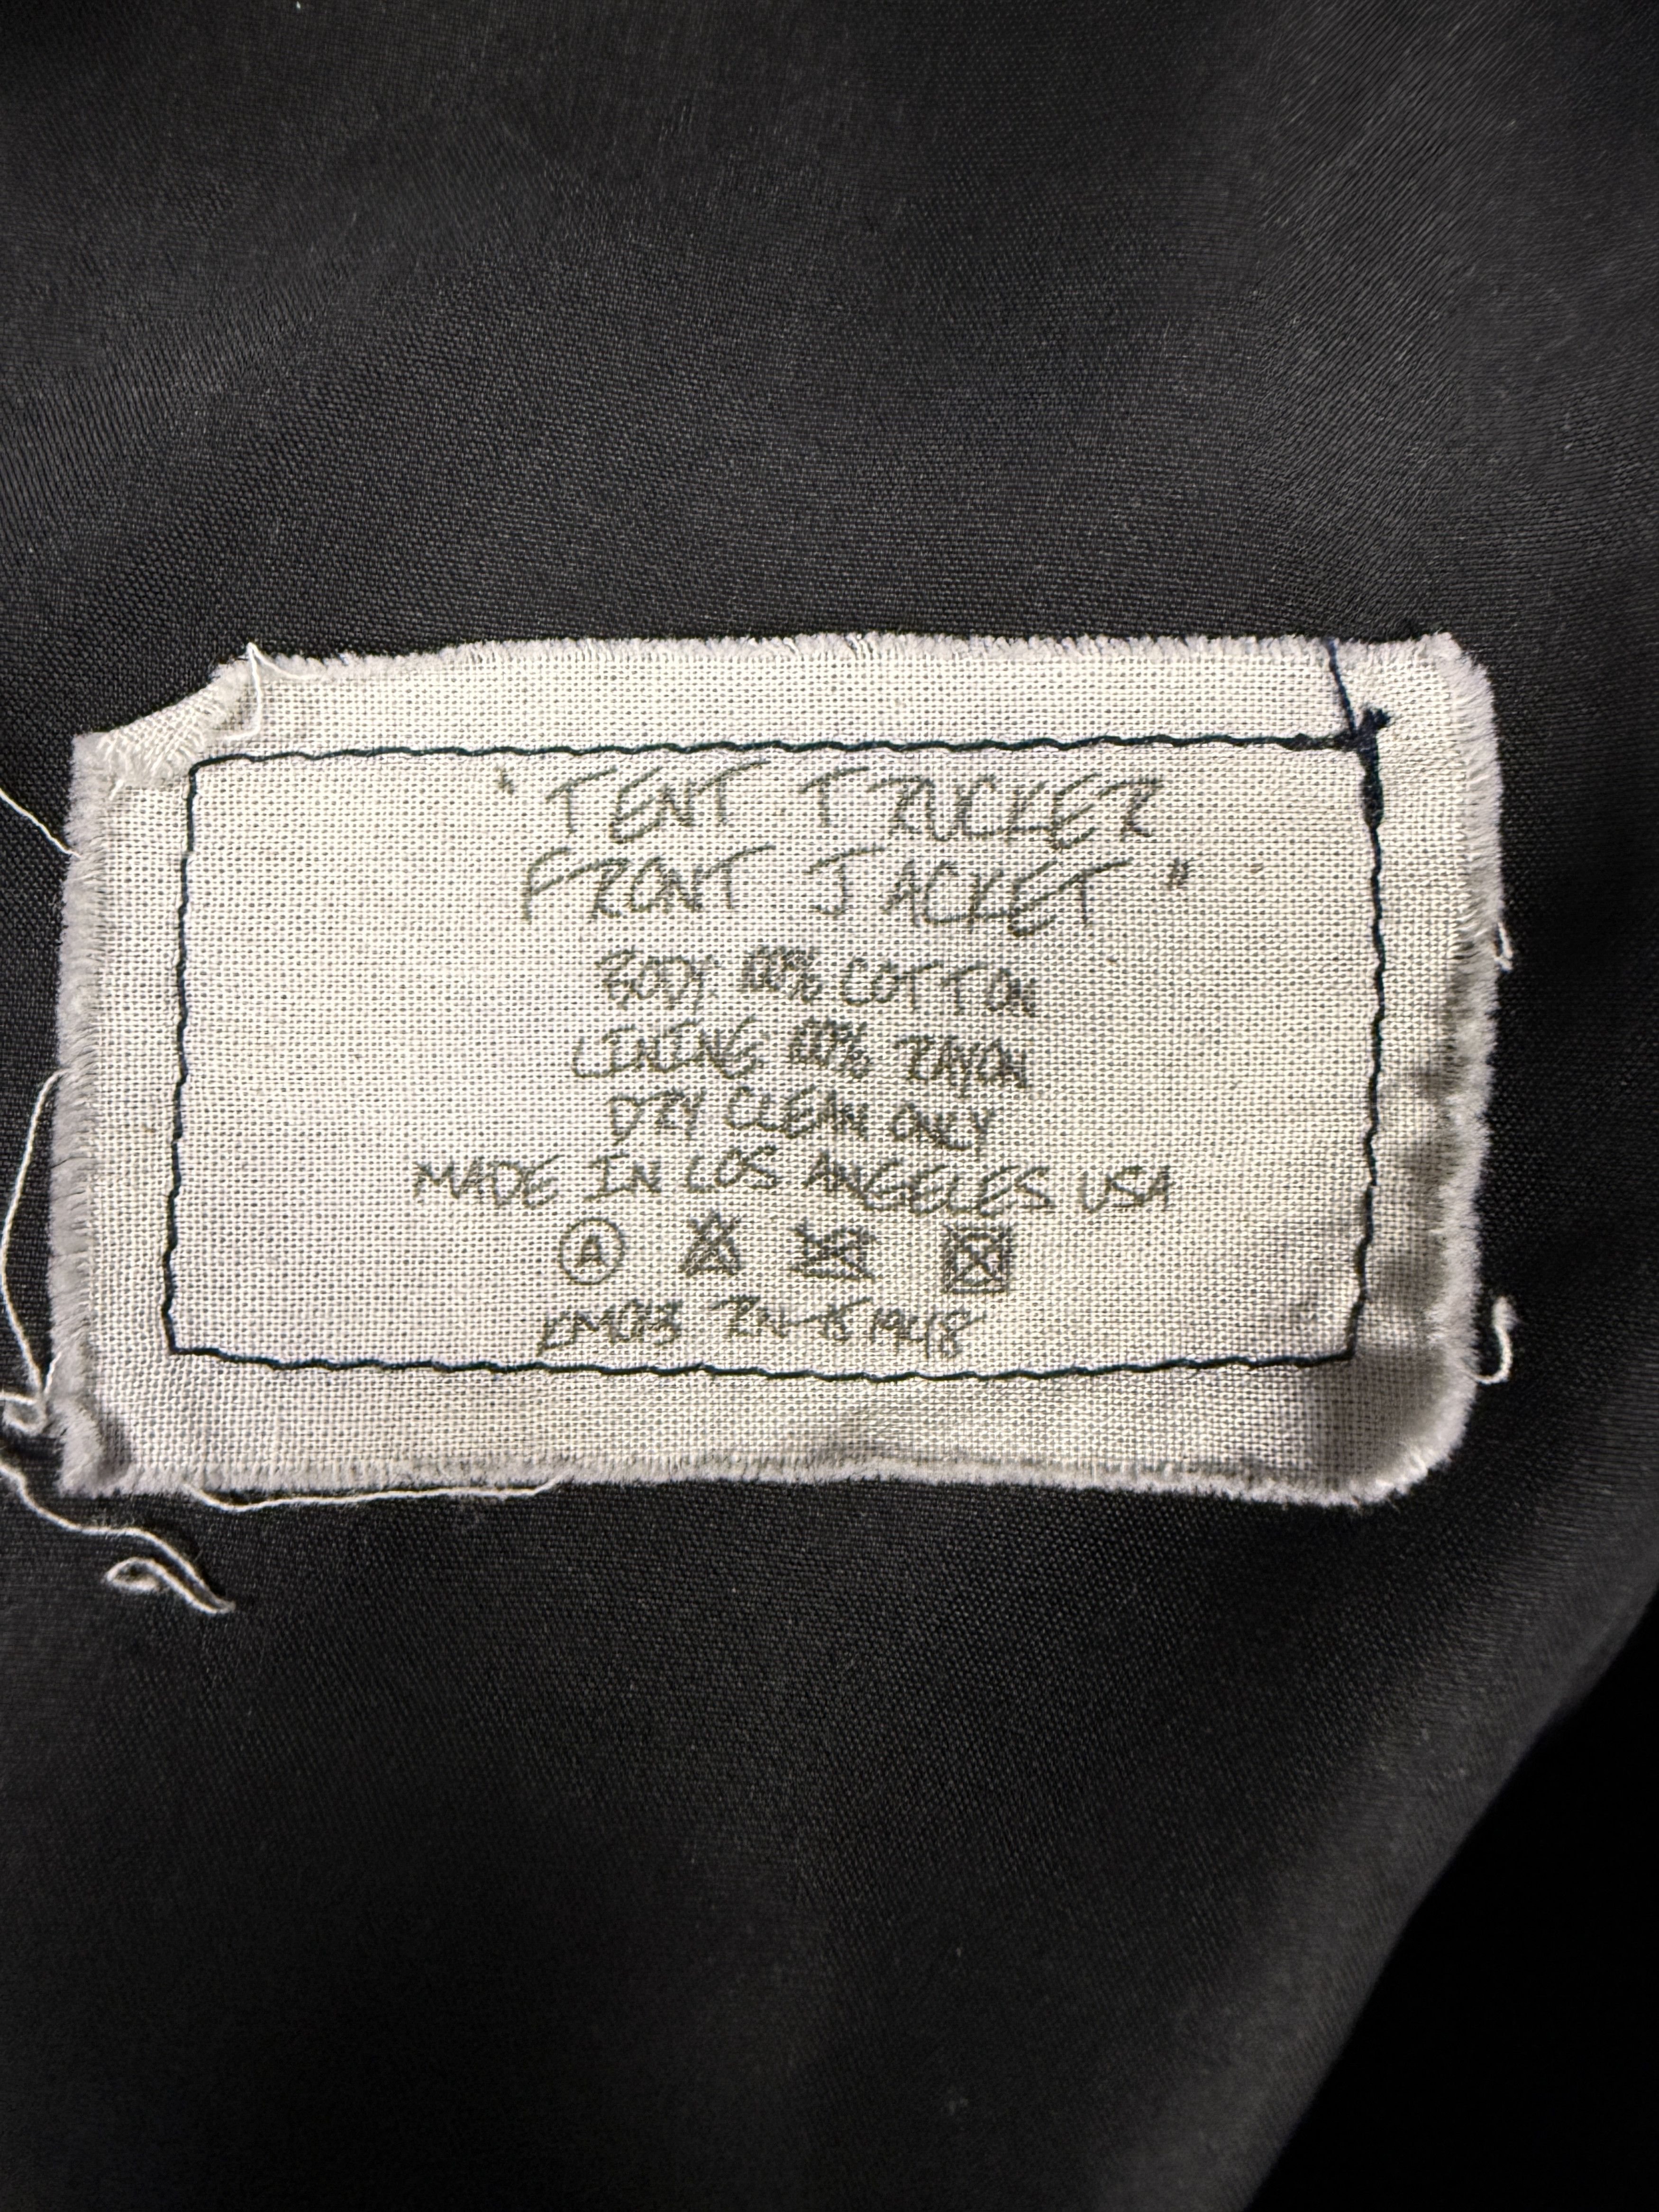 "TENT TRUCKER
FRONT JACKET"
BODY: 100% COTTON
LINING: 100% RAYON
DRY CLEAN ONLY
MADE IN LOS ANGELES USA
A